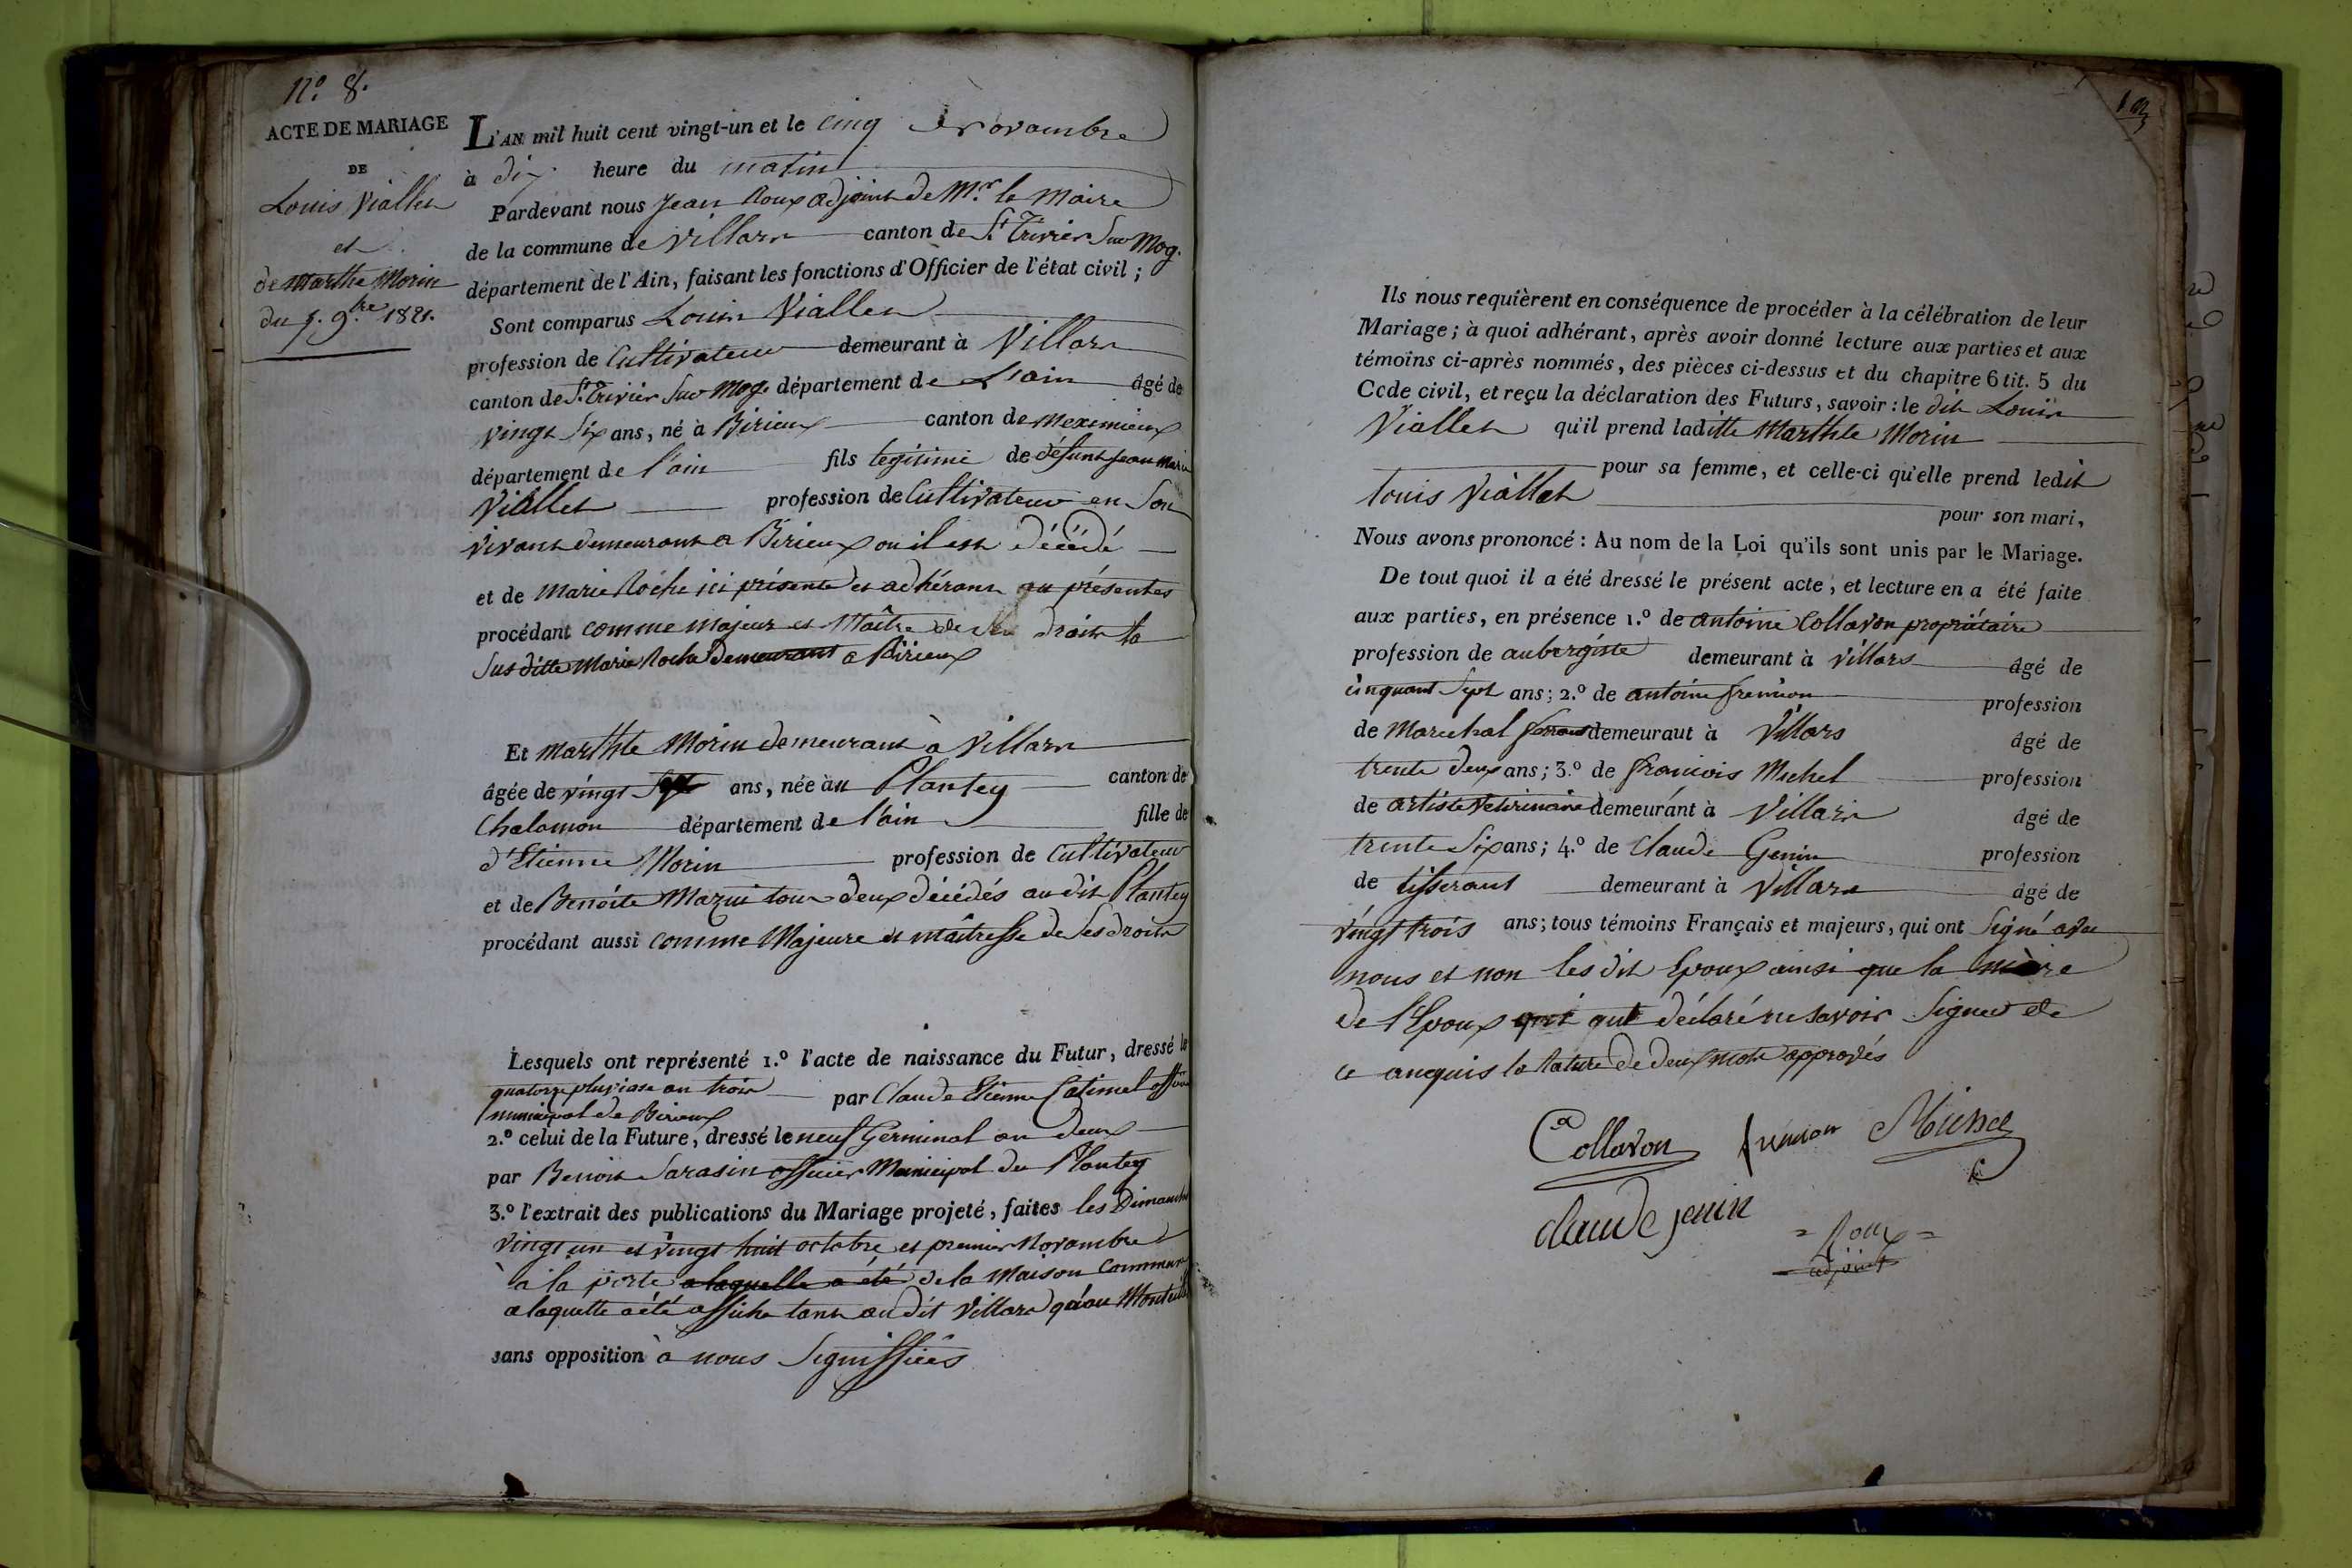 N.º 8.
ACTE DE MARIAGE
DE
Louis Viallet
et
de Marthe Morin
du 5. 9.bre 1821.
L'AN mil huit cent vingt-un et le cinq Novambre
à dix heure du matin
Pardevant nous Jean Roux adjoint de Mr. le Maire
de la commune de Villars canton de St. Trivier Sur Mog.
département de l'Ain, faisant les fonctions d'Officier de l'état civil ;
Sont comparus Louis Viallet
profession de Cultivateur demeurant à Villars
canton de St. Trivier Sur Mog. département de L'ain âgé de
vingt Six ans, né à Birieux canton de Meximieux
département de l'ain fils legitime de défunt Jean Marie
Viallet profession de Cultivateur en Son
vivant demeurant a Birieux ou il est décédé
et de Marie Roche ici présente et adhérant au présentes
procédant comme Majeur et Maître de Ses droits la
Sus ditte Marie Roche demeurant a Birieux
Et Marthte Morin demeurant à Villars
âgée de vingt Sept ans, née àu Plantey canton de
Chalamon département de l'ain fille de
d'Etienne Morin profession de Cultivateur
et de Benoite Mazui tous deux décédés au dit Plantey
procédant aussi comme Majeure et maîtresse de Ses droits
Lesquels ont représenté 1.º l'acte de naissance du Futur, dressé le
quatorze pluviose an trois par Claude Etienne Catimel off
municipal de Birieux
2.º celui de la Future, dressé le neuf Germinal an deux
par Benoit Sarasin officier Municipal du Plantey
3.º l'extrait des publications du Mariage projeté, faites les Dimanche
vingt un et vingt huit octobre et premier Novambre
à la porte a laquelle a été de la Maison Commune
a laquelle a été affiche tant au dit Villars qu'au Montell
sans opposition à nous Signiffiées
Ils nous requièrent en conséquence de procéder à la célébration de leur
Mariage ; à quoi adhérant, après avoir donné lecture aux parties et aux
témoins ci-après nommés, des pièces ci-dessus et du chapitre 6 tit. 5 du
Code civil, et reçu la déclaration des Futurs, savoir : le dit Louis
Viallet qu'il prend laditte Marthte Morin
pour sa femme, et celle-ci qu'elle prend ledit
Louis Viallet
pour son mari,
Nous avons prononcé : Au nom de la Loi qu'ils sont unis par le Mariage.
De tout quoi il a été dressé le présent acte, et lecture en a été faite
aux parties, en présence 1.º de antoine Collavon propriétaire
profession de aubergiste demeurant à Villars âgé de
cinquant Sept ans ; 2.º de antoine fremion profession
de Marechal ferrant demeurant à Villars âgé de
trente deux ans ; 3.º de francois Michel profession
de artiste veterinaire demeurant à Villars âgé de
trente Six ans ; 4.º de Claude Genin profession
de tisserant demeurant à Villars âgé de
vingt trois ans ; tous témoins Français et majeurs, qui ont Signé avec
nous et non les dit Epoux ainsi que la mère
de l'Epoux qui ont déclaré ne savoir Signer de
ce anquis la Rature de deux mots approvés
Collavon fremion Michel
claude jenin
= Roux =
adjoint